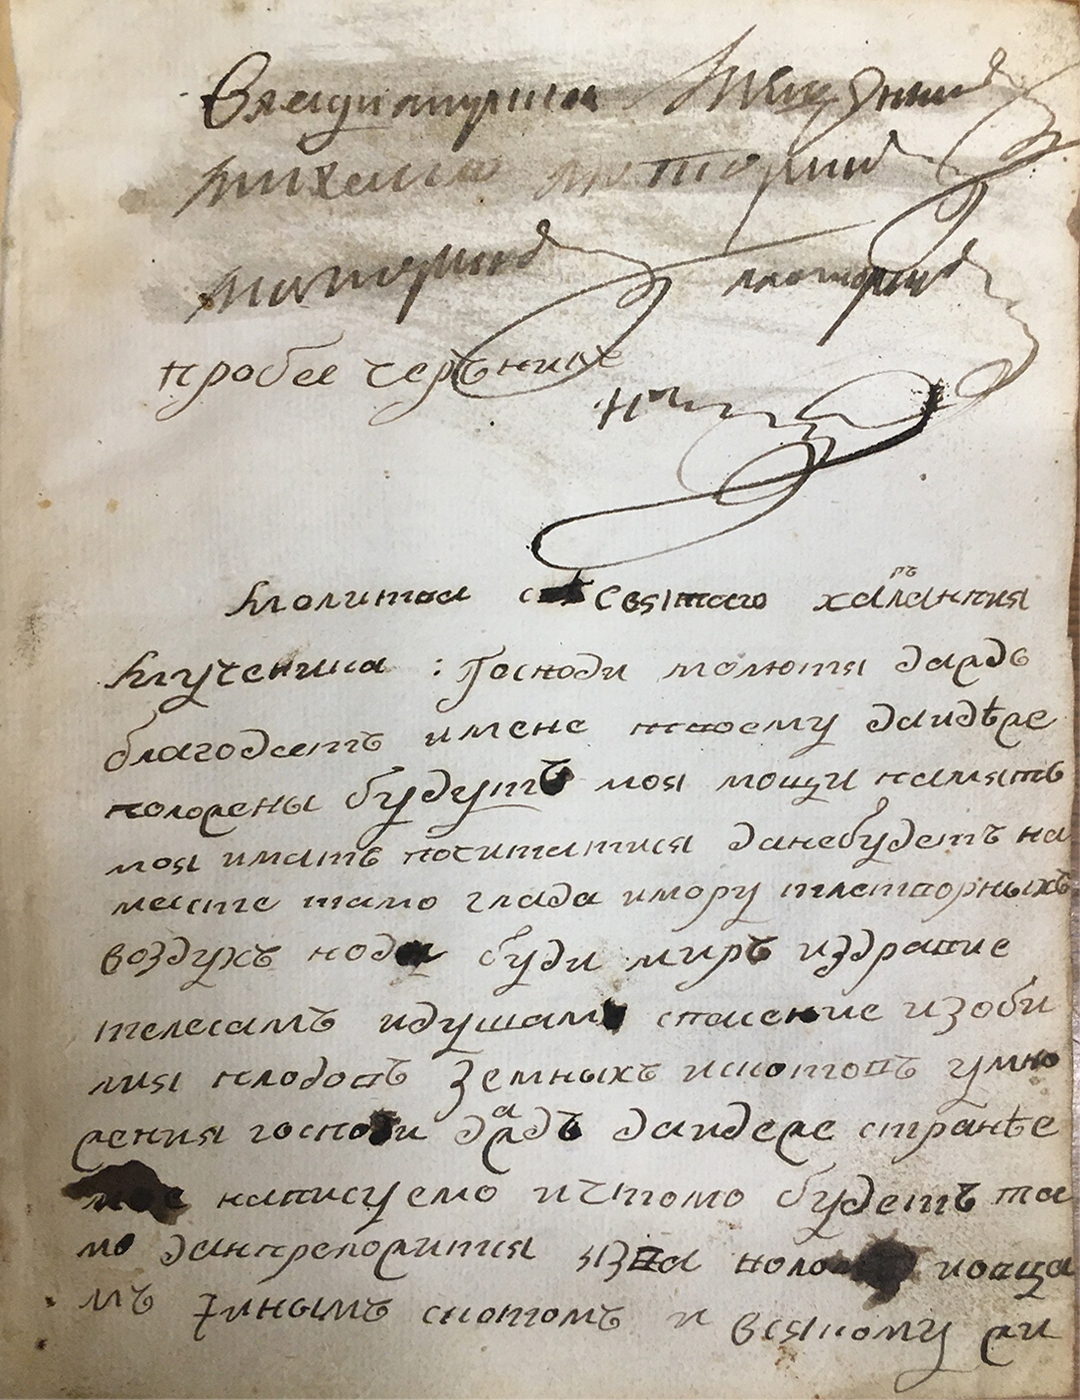 Михаила
маторина
пробее черънилъ
Молитва Святаго харълампия
Мученика : Господи молютя даждь
благодеть имене твоему даидѣже
положены будутъ моя мощи память
моя имать почитатися данебудетъ на
месте тамо глада имору тлетворныхъ
воздухъ нода буди миръ издравие
телесамъ идушамъ спасение изоби
лия плодовъ земныхъ искотовъ умно
жения господи даждь даидеже странѣе
мое написуемо ичтомо будетъ та
мо данпреложится язва нолов иовца
мъ инымъ скотомъ и всякому жи